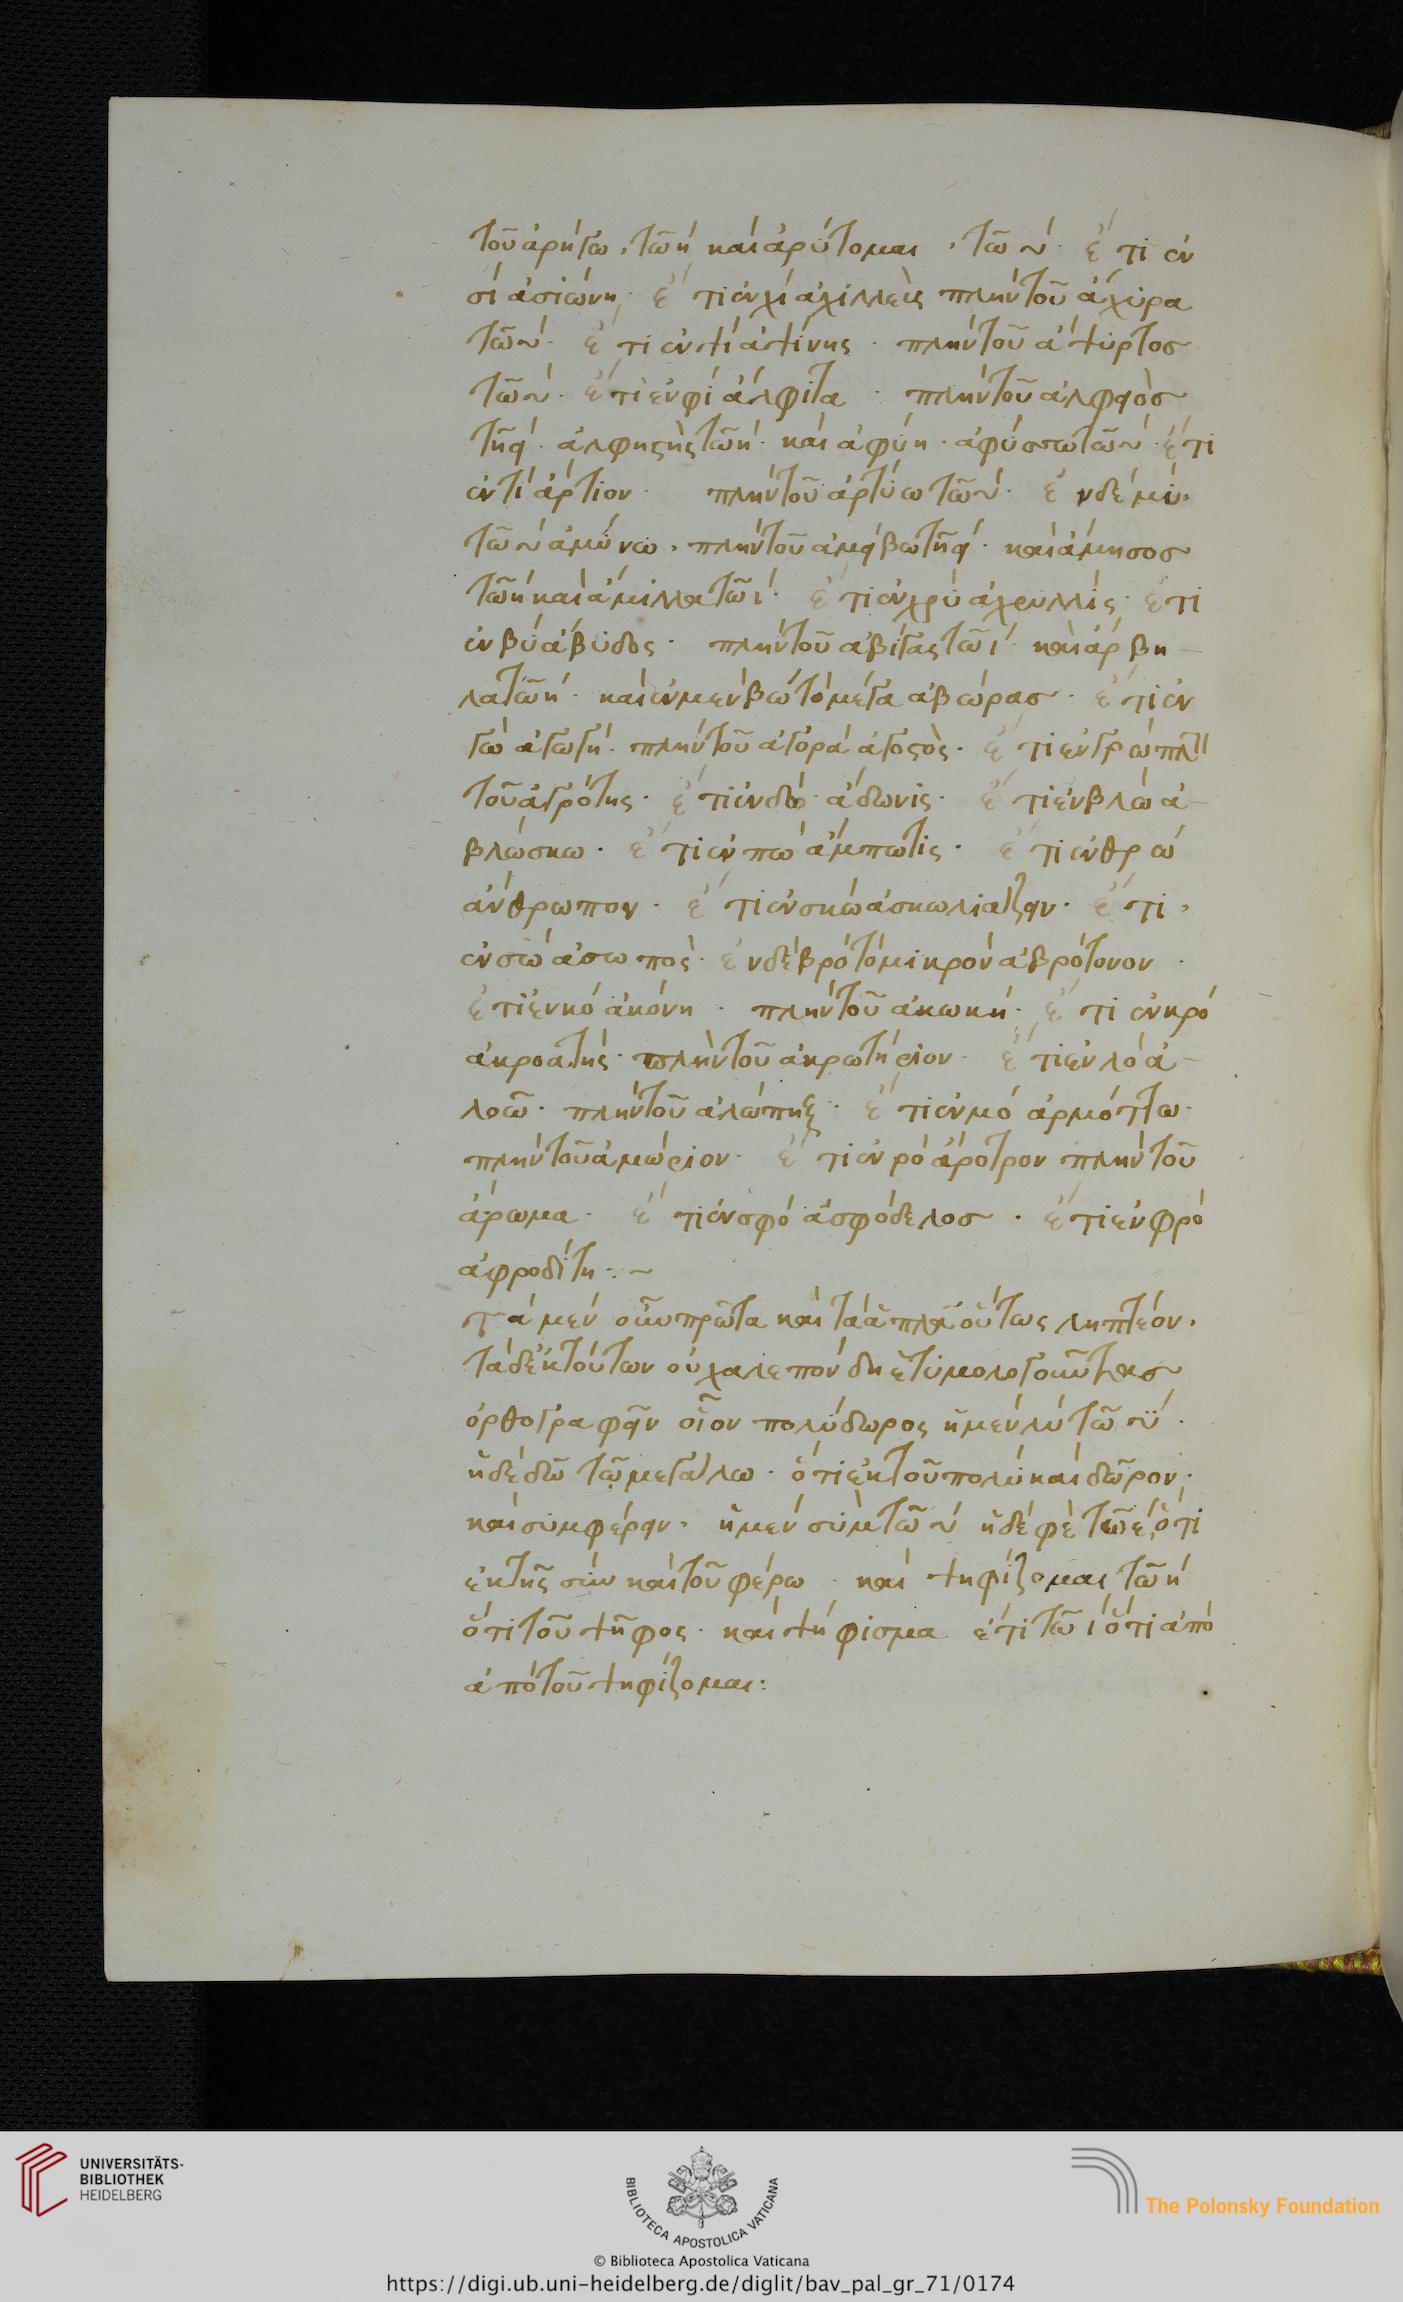 τοῦ ἀρήγω, τῶ ή καὶ ἀρύτομαι, τῶ υ· ἔτι ἐν
σί ἀσιώνη, ἔτι ἐν χί ἀχίλλεὺς πλὴν τοῦ ἄχυρα
τῶ υ· ἔτι ἐν ψί ἀψίνης· πλὴν τοῦ ἄψυρτος
τῶ υ· ἔτι ἐν φί ἄλφιτα· πλὴν τοῦ ἀλφειὸς
τῆ ει· ἀλφηστὴς τῶ ή· καὶ ἀφύη· ἀφύσσω τῶ υ· ἔτι
ἐν τί ἄρτιον· πλὴν τοῦ ἀρτύω τῶ υ· ἐν δὲ μύ
τῶ υ ἀμύνω, πλὴν τοῦ ἀμείβω τῆ ει· καὶ ἄμησος
τῶ ή καὶ ἅμιλλα τῶ ι· ἔτι ἐν χρύ ἀχρυλλίς· ἔτι
ἐν βύ ἄβυδος· πλὴν τοῦ ἀβίγας τῶ ι· καὶ ἀρβη-
λα τῶ ή· καὶ ἐν μὲν βώ τὸ μέγα ἀβώρας· ἔτι ἐν
γώ ἀγωγή· πλὴν τοῦ ἀγορά ἀγοστὸς· ἔτι ἐν γρώ πλὴν
τοῦ ἀγρότης· ἔτι ἐν δώ· ἄδωνις· ἔτι ἐν βλώ ἀ-
βλώσκω· ἔτι ἐν πώ ἄμπωτις· ἔτι ἐν θρώ
ἄνθρωπον· ἔτι ἐν σκώ ἀσκωλιάζειν· ἔτι,
ἐν σώ ἀσωπὸς· ἐν δὲ βρό τὸ μικρὸν ἀβρότονον·
ἔτι ἐν κό ἀκόνη· πλὴν τοῦ ἀκωκή· ἔτι ἐν κρό
ἀκροατής· πλὴν τοῦ ἀκρωτήριον· ἔτι ἐν λό ἀ-
λοῶ· πλὴν τοῦ ἀλώπηξ· ἔτι ἐν μό ἁρμόττω·
πλὴν τοῦ ἀμώριον· ἔτι ἐν ρό ἄροτρον πλὴν τοῦ
ἄρωμα· ἔτι ἐν σφό ἀσφόδελος· ἔτι ἐν φρό
ἀφροδίτη:~
τὰ μὲν οὖν πρῶτα καὶ τὰ ἁπλᾶ οὕτως ληπτέον,
τὰ δὲ ἐκ τούτων οὐ χαλεπὸν δὴ ἐτυμολογοῦντας
ὀρθογραφεῖν οἷον πολύδωρος ἡ μὲν λύ τῶ υ·
ἡ δὲ δῶ τῷ μεγάλω· ὅτι ἐκ τοῦ πολὺ καὶ δῶρον·
καὶ συμφέρειν· ἡ μὲν σὺμ τῶ υ ἡ δὲ φὲ τῶ ε, ὅτι
ἐκ τῆς σὺν καὶ τοῦ φέρω· καὶ ψηφίζομαι τῶ ή
ὅτι τοῦ ψῆφος· καὶ ψήφισμα ἔτι τῶ ι ὅτι ἀπὸ
ἀπὸ τοῦ ψηφίζομαι:
UNIVERSITÄTS-
BIBLIOTHEK
HEIDELBERG
BIBLIOTECA APOSTOLICA VATICANA
© Biblioteca Apostolica Vaticana
The Polonsky Foundation
https://digi.ub.uni-heidelberg.de/diglit/bav_pal_gr_71/0174